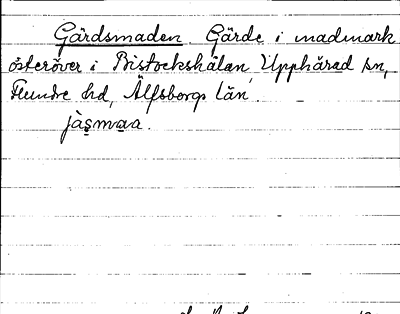 Gärdsmaden Gärde i madmark
österöver i Bistockshålan, Upphärad sn,
Flundre hd, Älfsborgs län.
jàsmaa.